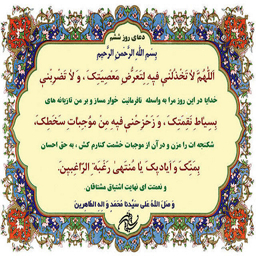 دعای روز ششم
بِسْمِ اللَّهِ الرَّحْمنِ الرَّحیمِ
اَللّهُمَّ لا تَخْذُلْنی فیهِ لِتَعَرُّضِ مَعْصِیَتِکَ، وَ لا تَضْرِبْنی
خدایا در این روز مرا به واسطه نافرمانیت خوار مساز و بر من تازیانه های
بِسِیاطِ نَقِمَتِکَ، وَ زَحْزِحْنی فیهِ مِنْ مُوجِباتِ سَخَطِکَ،
شکنجه ات را مزن و در آن از موجبات خشمت کنارم کش، به حق احسان
بِمَنِّکَ وَ اَیادیکَ یا مُنْتَهی رَغْبَةِ الرّاغِبینَ.
و نعمتت ای نهایت اشتیاق مشتاقان.
وَ صَلَّ اللهُ عَلی سَیِّدِنا مُحَمَّدٍ وَ الِهِ الطّاهِرینَ